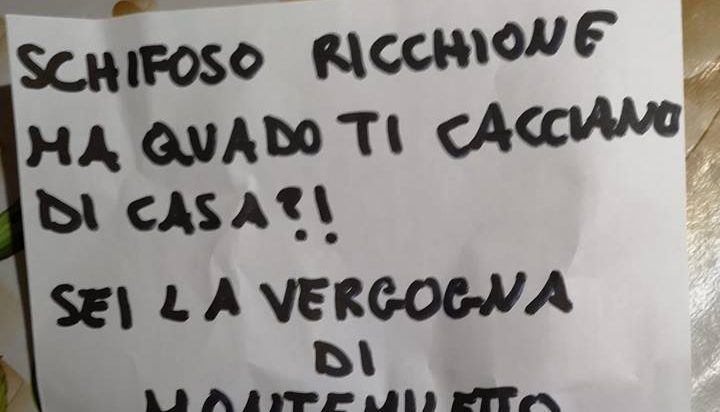 SCHIFOSO RICCHIONE
MA QUADO TI CACCIANO
DI CASA?!
SEI LA VERGOGNA
DI
MONTEMILETTO